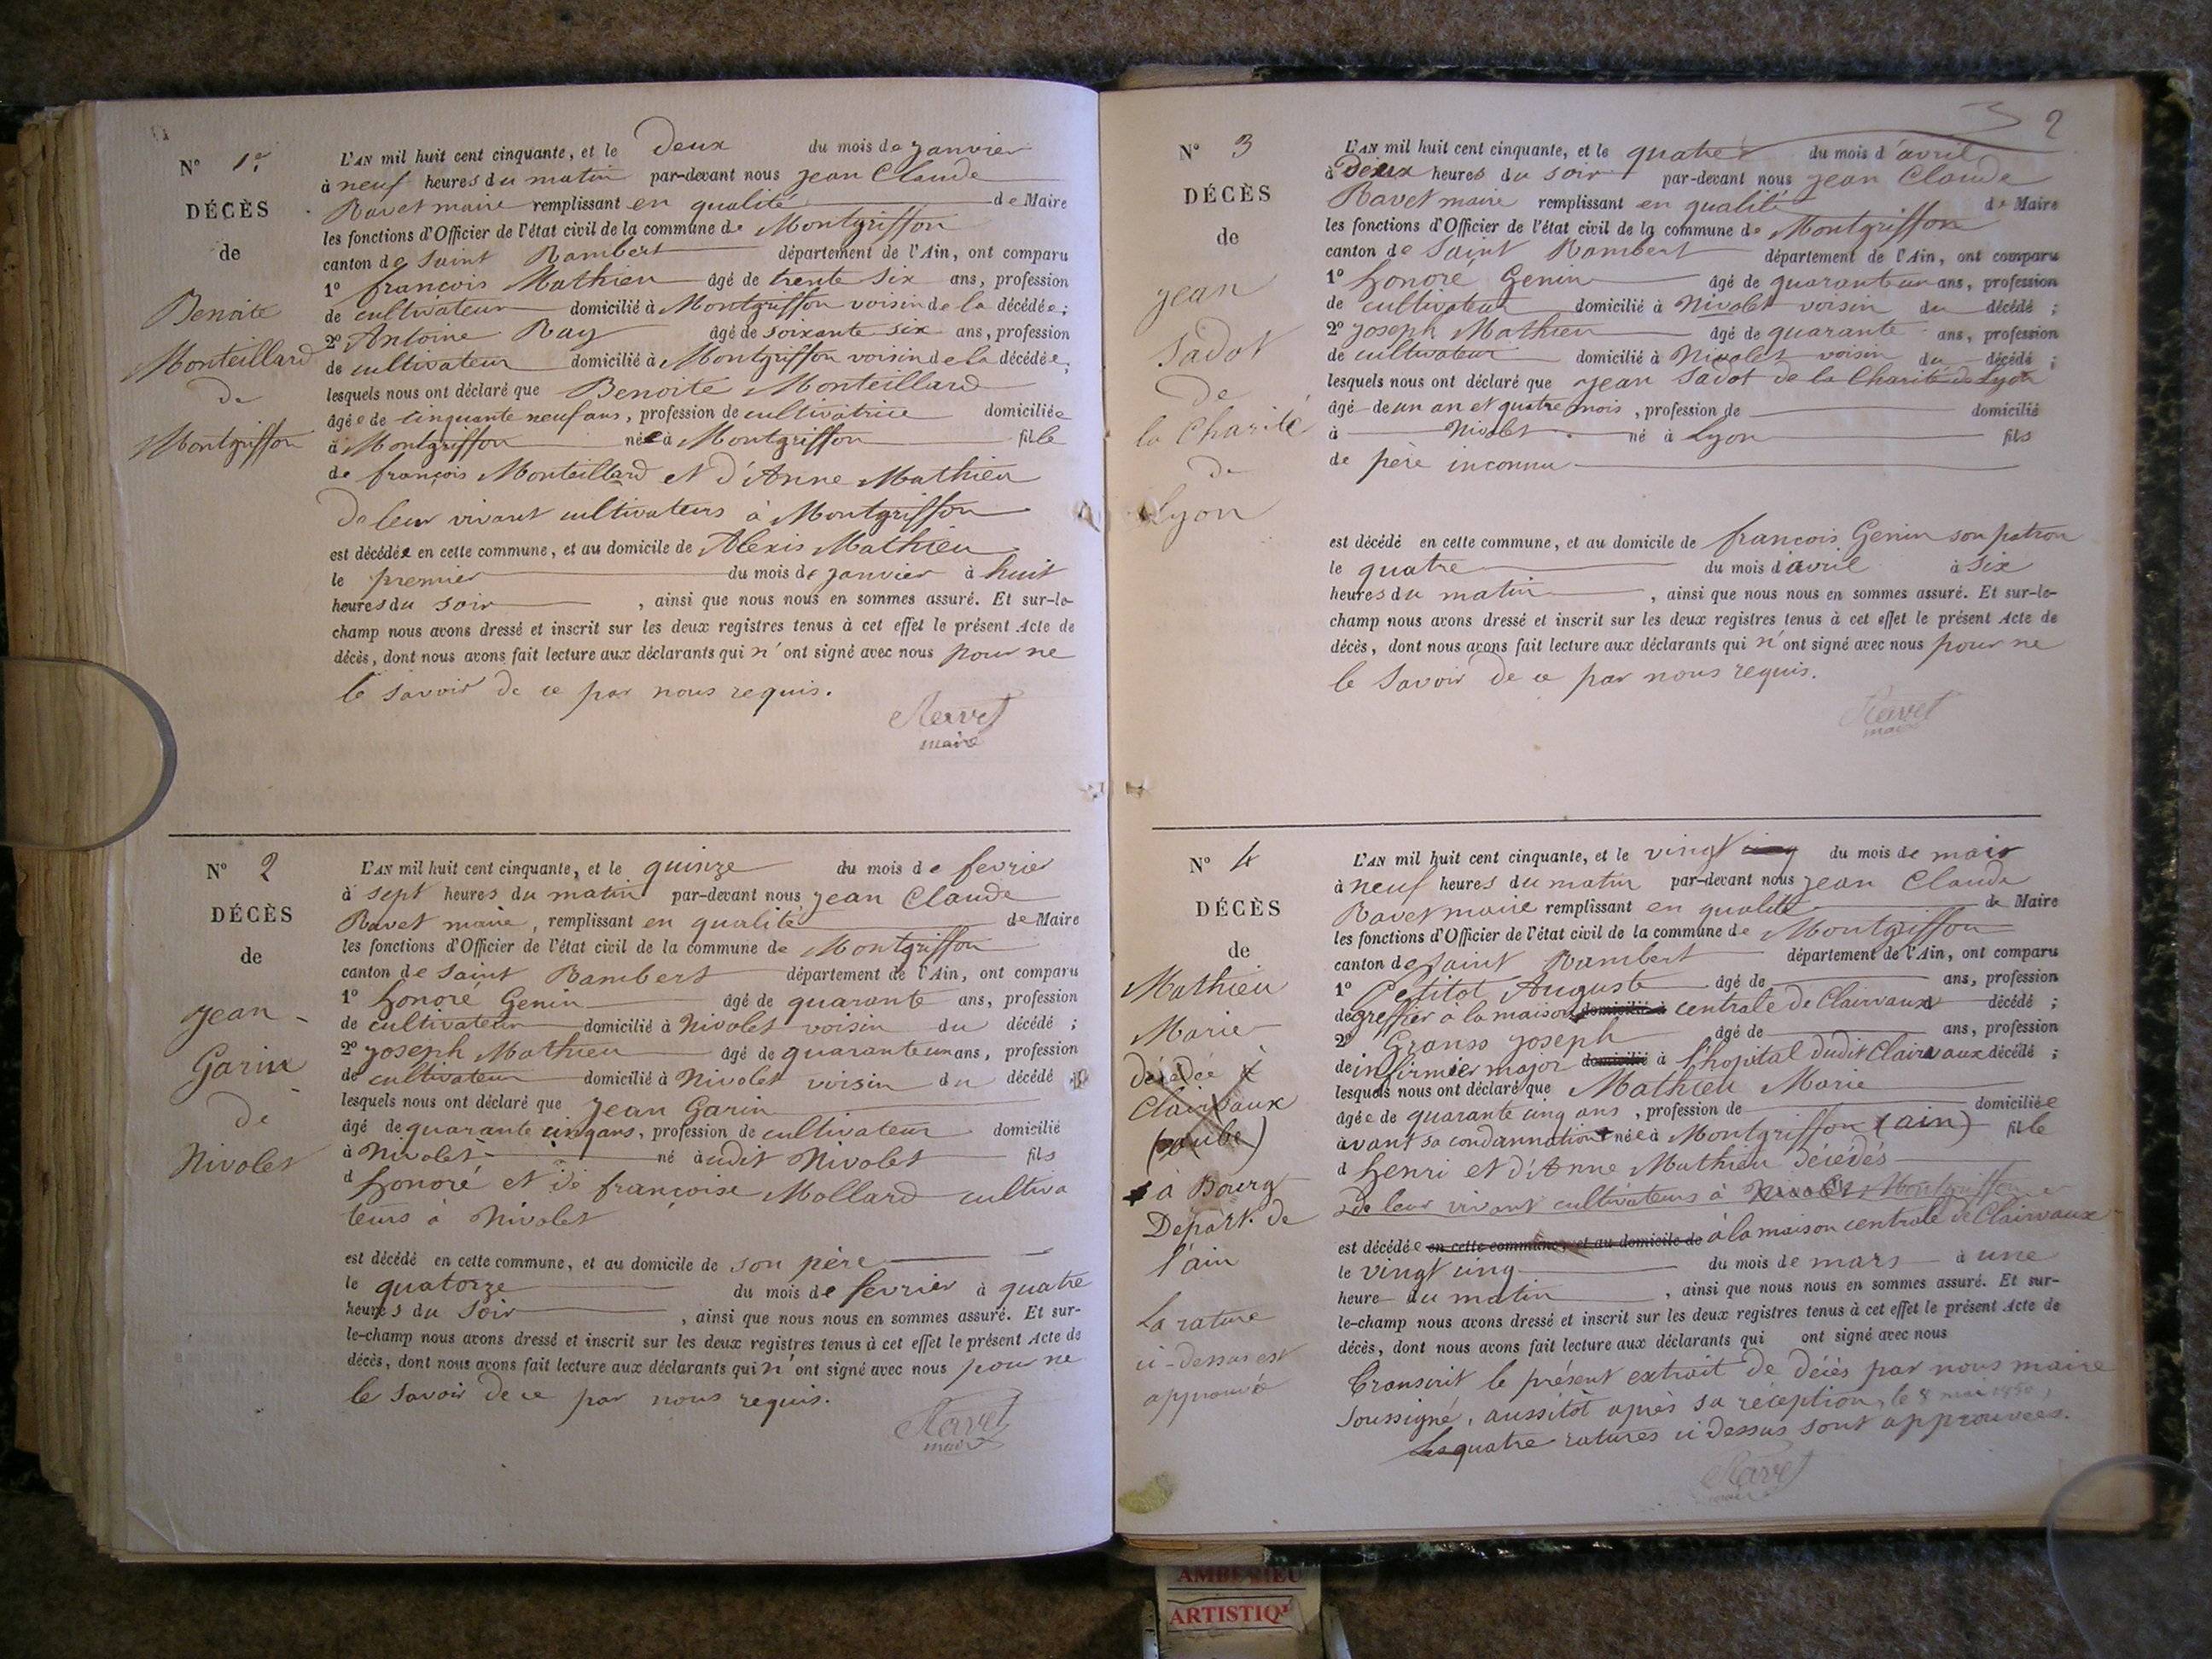 N° 1er
DÉCÈS
de
Benoite
Monteillard
de
Montgriffon
L'AN mil huit cent cinquante, et le deux du mois de janvier
à neuf heures du matin par-devant nous jean Claude
Ravet maire remplissant en qualité de Maire
les fonctions d'Officier de l'état civil de la commune de Montgriffon
canton de Saint Rambert département de l'Ain, ont comparu
1° françois Mathieu âgé de trente six ans, profession
de cultivateur domicilié à Montgriffon voisin de la décédée;
2° Antoine Ray âgé de soixante six ans, profession
de cultivateur domicilié à Montgriffon voisin de la décédée;
lesquels nous ont déclaré que Benoite Monteillard
âgée de cinquante neuf ans, profession de cultivatrice domiciliée
à Montgriffon née à Montgriffon fille
de françois Monteillard et d'Anne Mathieu
de leur vivant cultivateurs à Montgriffon
est décédée en cette commune, et au domicile de Alexis Mathieu
le premier du mois de janvier à huit
heures du soir, ainsi que nous nous en sommes assuré. Et sur-le-
champ nous avons dressé et inscrit sur les deux registres tenus à cet effet le présent Acte de
décès, dont nous avons fait lecture aux déclarants qui n'ont signé avec nous pour ne
le savoir de ce par nous requis.
Ravet
maire
N° 2
DÉCÈS
de
jean
Garin
de
Nivolet
L'AN mil huit cent cinquante, et le quinze du mois de fevrier
à sept heures du matin par-devant nous jean Claude
Ravet maire, remplissant en qualité de Maire
les fonctions d'Officier de l'état civil de la commune de Montgriffon
canton de Saint Rambert département de l'Ain, ont comparu
1° honoré Genin âgé de quarante ans, profession
de cultivateur domicilié à Nivolet voisin du décédé;
2° joseph Mathieu âgé de quarante un ans, profession
de cultivateur domicilié à Nivolet voisin du décédé;
lesquels nous ont déclaré que jean Garin
âgé de quarante cinq ans, profession de cultivateur domicilié
à Nivolet né audit Nivolet fils
d honoré et de françoise Mollard cultiva
teurs à Nivolet
est décédé en cette commune, et au domicile de son père
le quatorze du mois de fevrier à quatre
heures du soir, ainsi que nous nous en sommes assuré. Et sur-
le-champ nous avons dressé et inscrit sur les deux registres tenus à cet effet le présent Acte de
décès, dont nous avons fait lecture aux déclarants qui n'ont signé avec nous pour ne
le savoir de ce par nous requis.
Ravet
maire
2
N° 3
DÉCÈS
de
jean
Sadot
de
la Charité
de
Lyon
L'AN mil huit cent cinquante, et le quatre du mois d'avril
à deux heures du soir par-devant nous jean Claude
Ravet maire remplissant en qualité de Maire
les fonctions d'Officier de l'état civil de la commune de Montgriffon
canton de Saint Rambert département de l'Ain, ont comparu
1° honoré Genin âgé de quarante un ans, profession
de cultivateur domicilié à Nivolet voisin du décédé;
2° joseph Mathieu âgé de quarante ans, profession
de cultivateur domicilié à Nivolet voisin du décédé;
lesquels nous ont déclaré que jean Sadot de la Charité de Lyon
âgé de un an et quatre mois, profession de domicilié
à Nivolet né à Lyon fils
de père inconnu
est décédé en cette commune, et au domicile de francois Genin son patron
le quatre du mois d'avril à six
heures du matin, ainsi que nous nous en sommes assuré. Et sur-le-
champ nous avons dressé et inscrit sur les deux registres tenus à cet effet le présent Acte de
décès, dont nous avons fait lecture aux déclarants qui n'ont signé avec nous pour ne
le savoir de ce par nous requis.
Ravet
maire
N° 4
DÉCÈS
de
Mathieu
Marie
décédée à
Clairvaux
(aube)
à Bourg
Depart. de
l'ain
La rature
ci-dessus est
approuvée
L'AN mil huit cent cinquante, et le vingt cinq du mois de mars
à neuf heures du matin par-devant nous jean Claude
Ravet maire remplissant en qualité de Maire
les fonctions d'Officier de l'état civil de la commune de Montgriffon
canton de Saint Rambert département de l'Ain, ont comparu
1° Petitot Auguste âgé de ans, profession
de greffier à la maison domicilié à centrale de Clairvaux décédé;
2° Granss joseph âgé de ans, profession
de infirmier major domicilié à l'hopital dudit Clairvaux décédé;
lesquels nous ont déclaré que Mathieu Marie
âgée de quarante cinq ans, profession de domiciliée
avant sa condannation née à Montgriffon (ain) fille
d henri et d'Anne Mathieu décédés
de leur vivant cultivateurs à Nivolet Montgriffon
est décédée en cette commune, et au domicile de à la maison centrale de Clairvaux
le vingt cinq du mois de mars à une
heure du matin, ainsi que nous nous en sommes assuré. Et sur-
le-champ nous avons dressé et inscrit sur les deux registres tenus à cet effet le présent Acte de
décès, dont nous avons fait lecture aux déclarants qui ont signé avec nous
Transcrit le présent extrait de décès par nous maire
soussigné, aussitôt après sa réception, le 8 mai 1850,
Les quatre ratures ci dessus sont approuvées.
Ravet
maire
AMBERIEU
ARTISTIQ